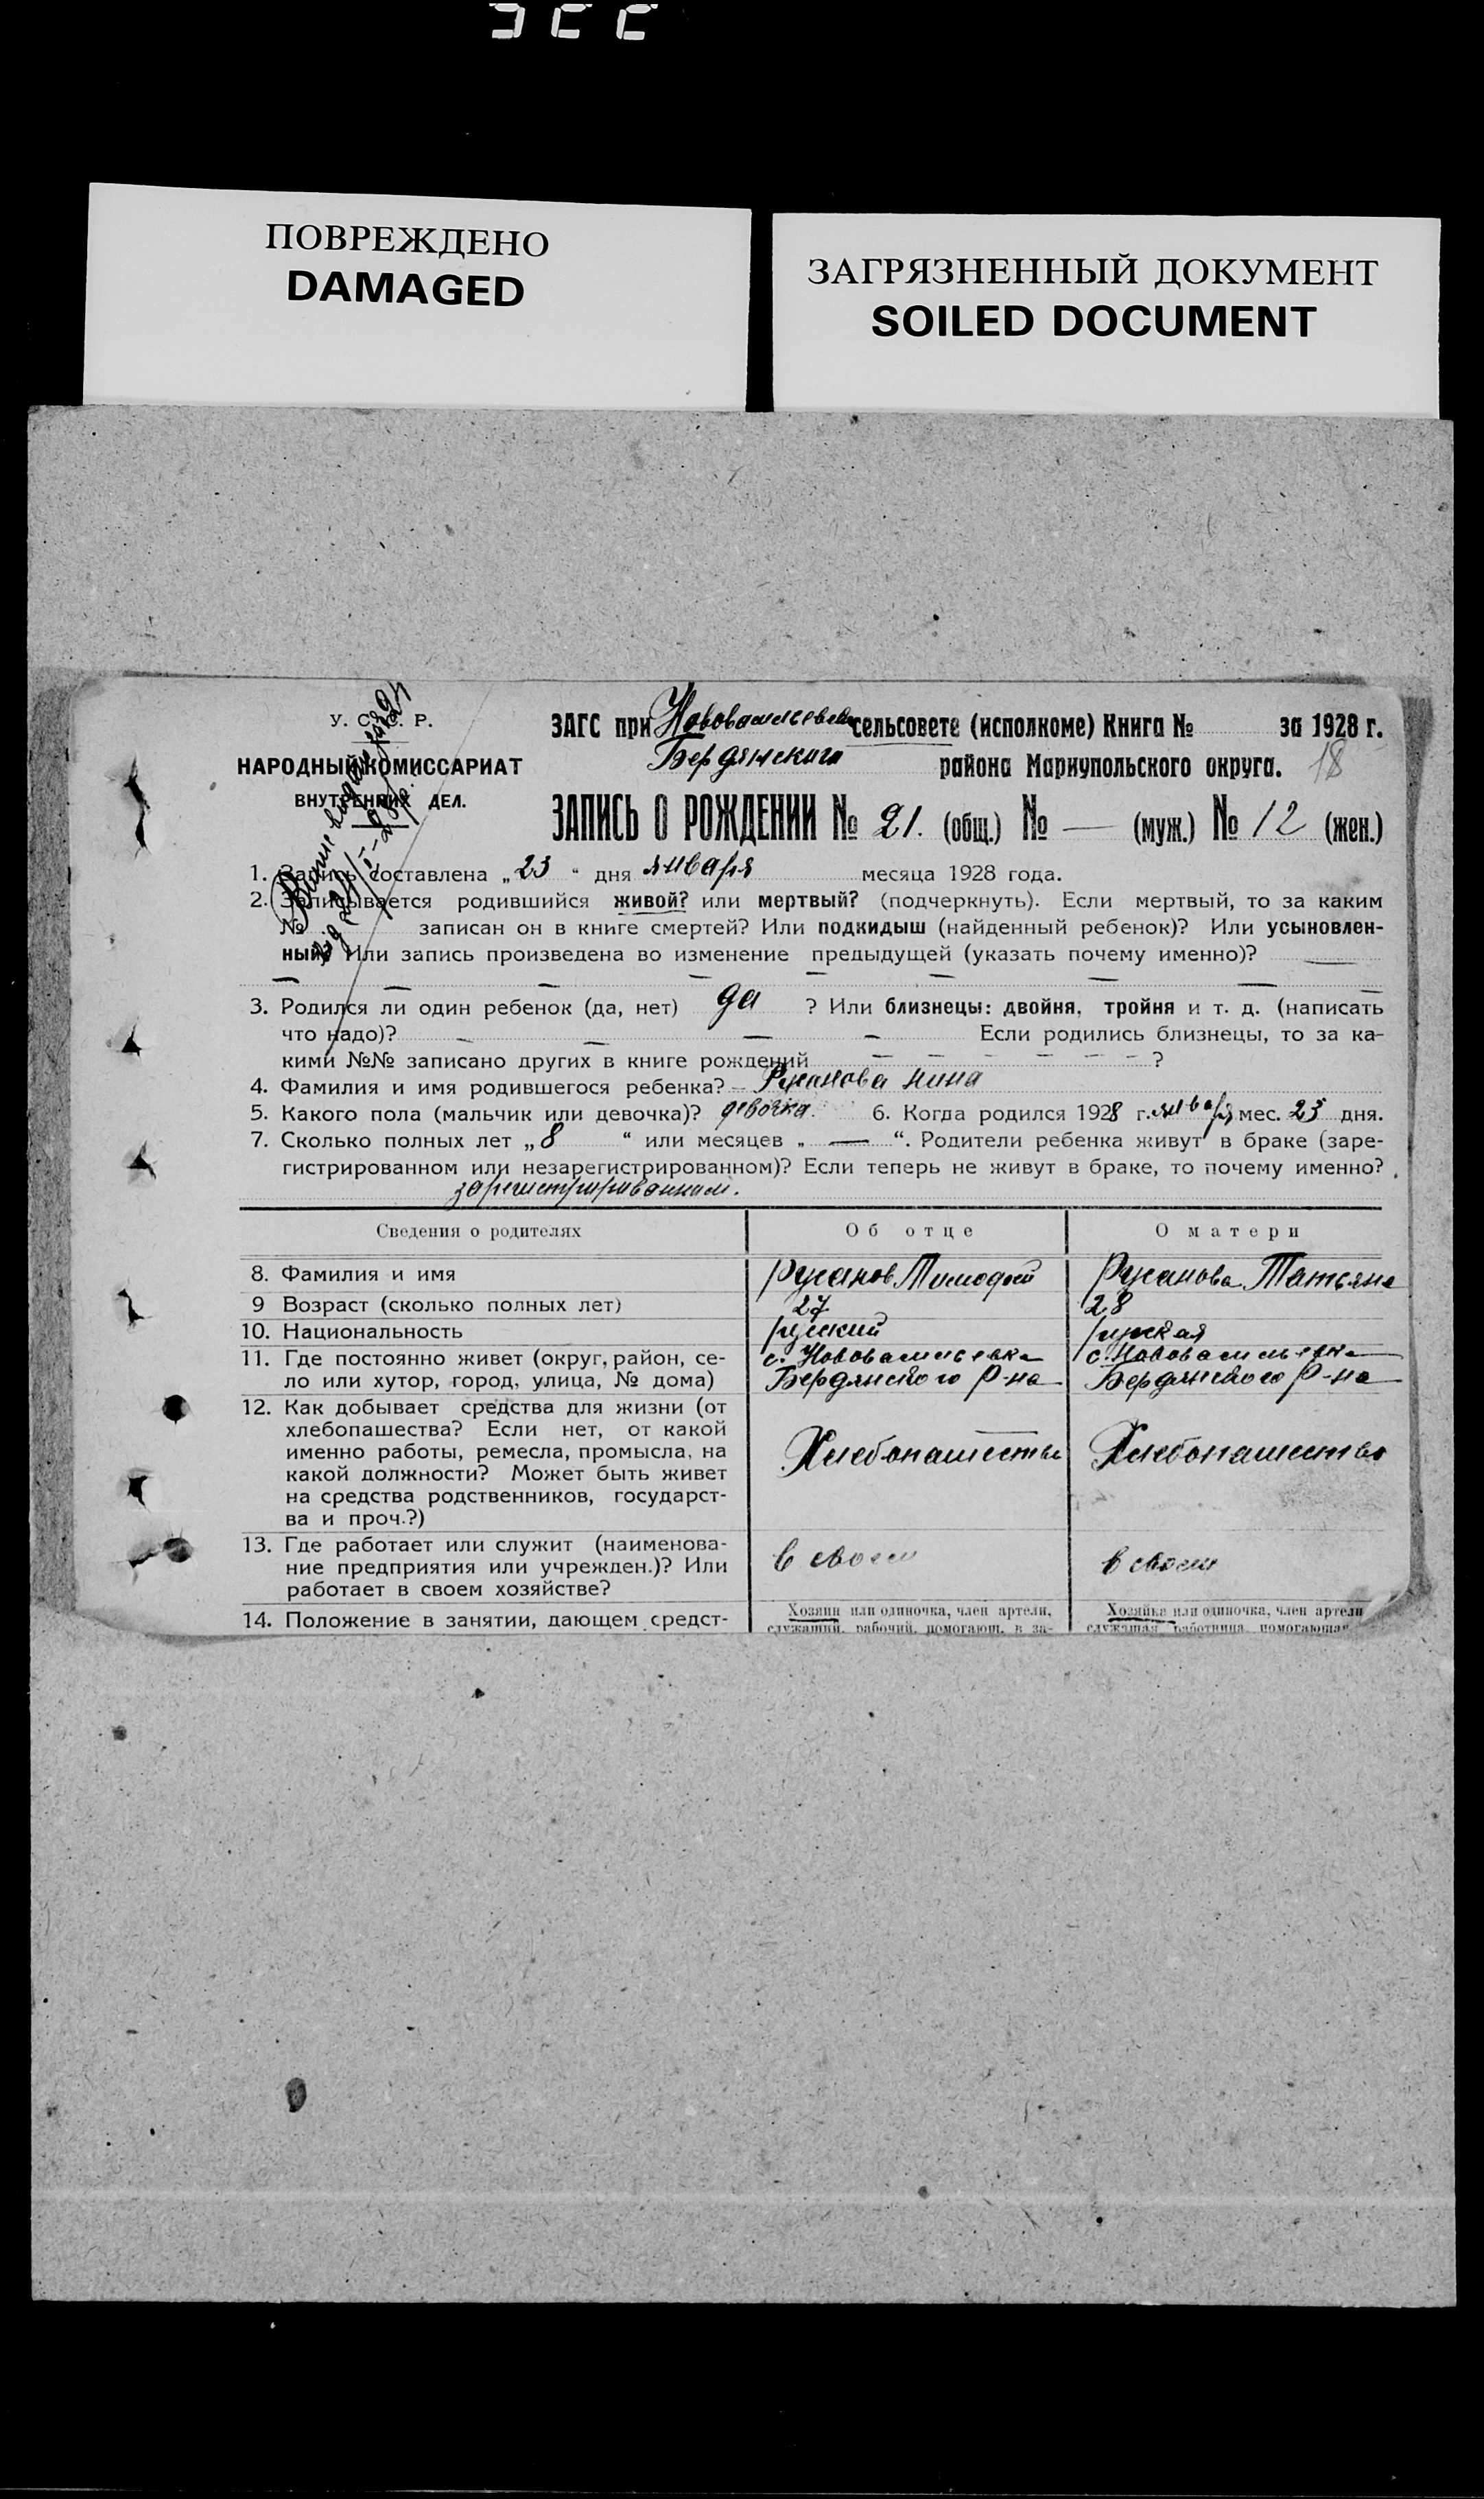 ПОВРЕЖДЕНО
DAMAGED
ЗАГРЯЗНЕННЫЙ ДОКУМЕНТ
SOILED DOCUMENT
У. С. Р.
НАРОДНЫЙ КОМИССАРИАТ
ВНУТРЕННИХ ДЕЛ.
ЗАГС при сельсовете (исполкоме) Книга № за 1928 г.
Бердянского района Мариупольского округа. 18
ЗАПИСЬ О РОЖДЕНИИ № 21. (общ.) № — (муж.) № 12 (жен.)
1. Запись составлена „23“ дня января месяца 1928 года.
2. Записывается родившийся живой? или мертвый? (подчеркнуть). Если мертвый, то за каким
№ записан он в книге смертей? Или подкидыш (найденный ребенок)? Или усыновлен-
ный? Или запись произведена во изменение предыдущей (указать почему именно)? —
— — — — — — — —
3. Родился ли один ребенок (да, нет) да ? Или близнецы: двойня, тройня и т. д. (написать
что надо)? — — — — Если родились близнецы, то за ка-
кими №№ записано других в книге рождений — — — — — — ?
4. Фамилия и имя родившегося ребенка? — Русанова Нина
5. Какого пола (мальчик или девочка)? девочка. 6. Когда родился 1928 г. января мес. 23 дня.
7. Сколько полных лет „8 “ или месяцев „ — “. Родители ребенка живут в браке (заре-
гистрированном или незарегистрированном)? Если теперь не живут в браке, то почему именно?
зарегистрированном.
Сведения о родителях Об отце О матери
8. Фамилия и имя Русанов Тимофей Русанова Татьяна
9 Возраст (сколько полных лет) 27 28
10. Национальность русский русская
11. Где постоянно живет (округ, район, се- с. Нововасильевка с. Нововасильевка
ло или хутор, город, улица, № дома) Бердянского р-на Бердянского р-на
12. Как добывает средства для жизни (от
хлебопашества? Если нет, от какой
именно работы, ремесла, промысла, на Хлебопашество Хлебопашество
какой должности? Может быть живет
на средства родственников, государст-
ва и проч.?)
13. Где работает или служит (наименова-
ние предприятия или учрежден.)? Или в своем в своем
работает в своем хозяйстве?
14. Положение в занятии, дающем средст- Хозяин или одиночка, член артели, Хозяйка или одиночка, член артели
служащий, рабочий, помогающ. в за- служащая работница помогающая